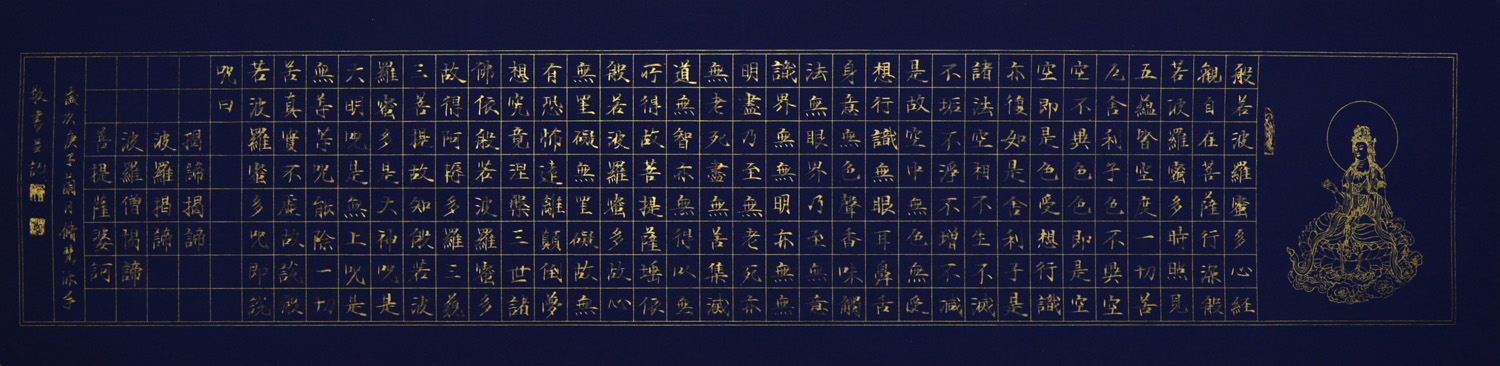 般若波羅蜜多心經
觀自在菩薩行深般
若波羅蜜多時照見
五蘊皆空度一切苦
厄舍利子色不異空
空不異色色即是空
空即是色受想行識
亦復如是舍利子是
諸法空相不生不滅
不垢不淨不增不減
是故空中無色無受
想行識無眼耳鼻舌
身意無色聲香味觸
法無眼界乃至無意
識界無無明亦無無
明盡乃至無老死亦
無老死盡無苦集滅
道無智亦無得以無
所得故菩提薩埵依
般若波羅蜜多故心
無罣礙無罣礙故無
有恐怖遠離顛倒夢
想究竟涅槃三世諸
佛依般若波羅蜜多
故得阿耨多羅三藐
三菩提故知般若波
羅蜜多是大神咒是
大明咒是無上咒是
無等等咒能除一切
苦真實不虛故說般
若波羅蜜多咒即說
咒曰
揭諦揭諦
波羅揭諦
波羅僧揭諦
菩提薩婆訶
歲次庚子月
敬書